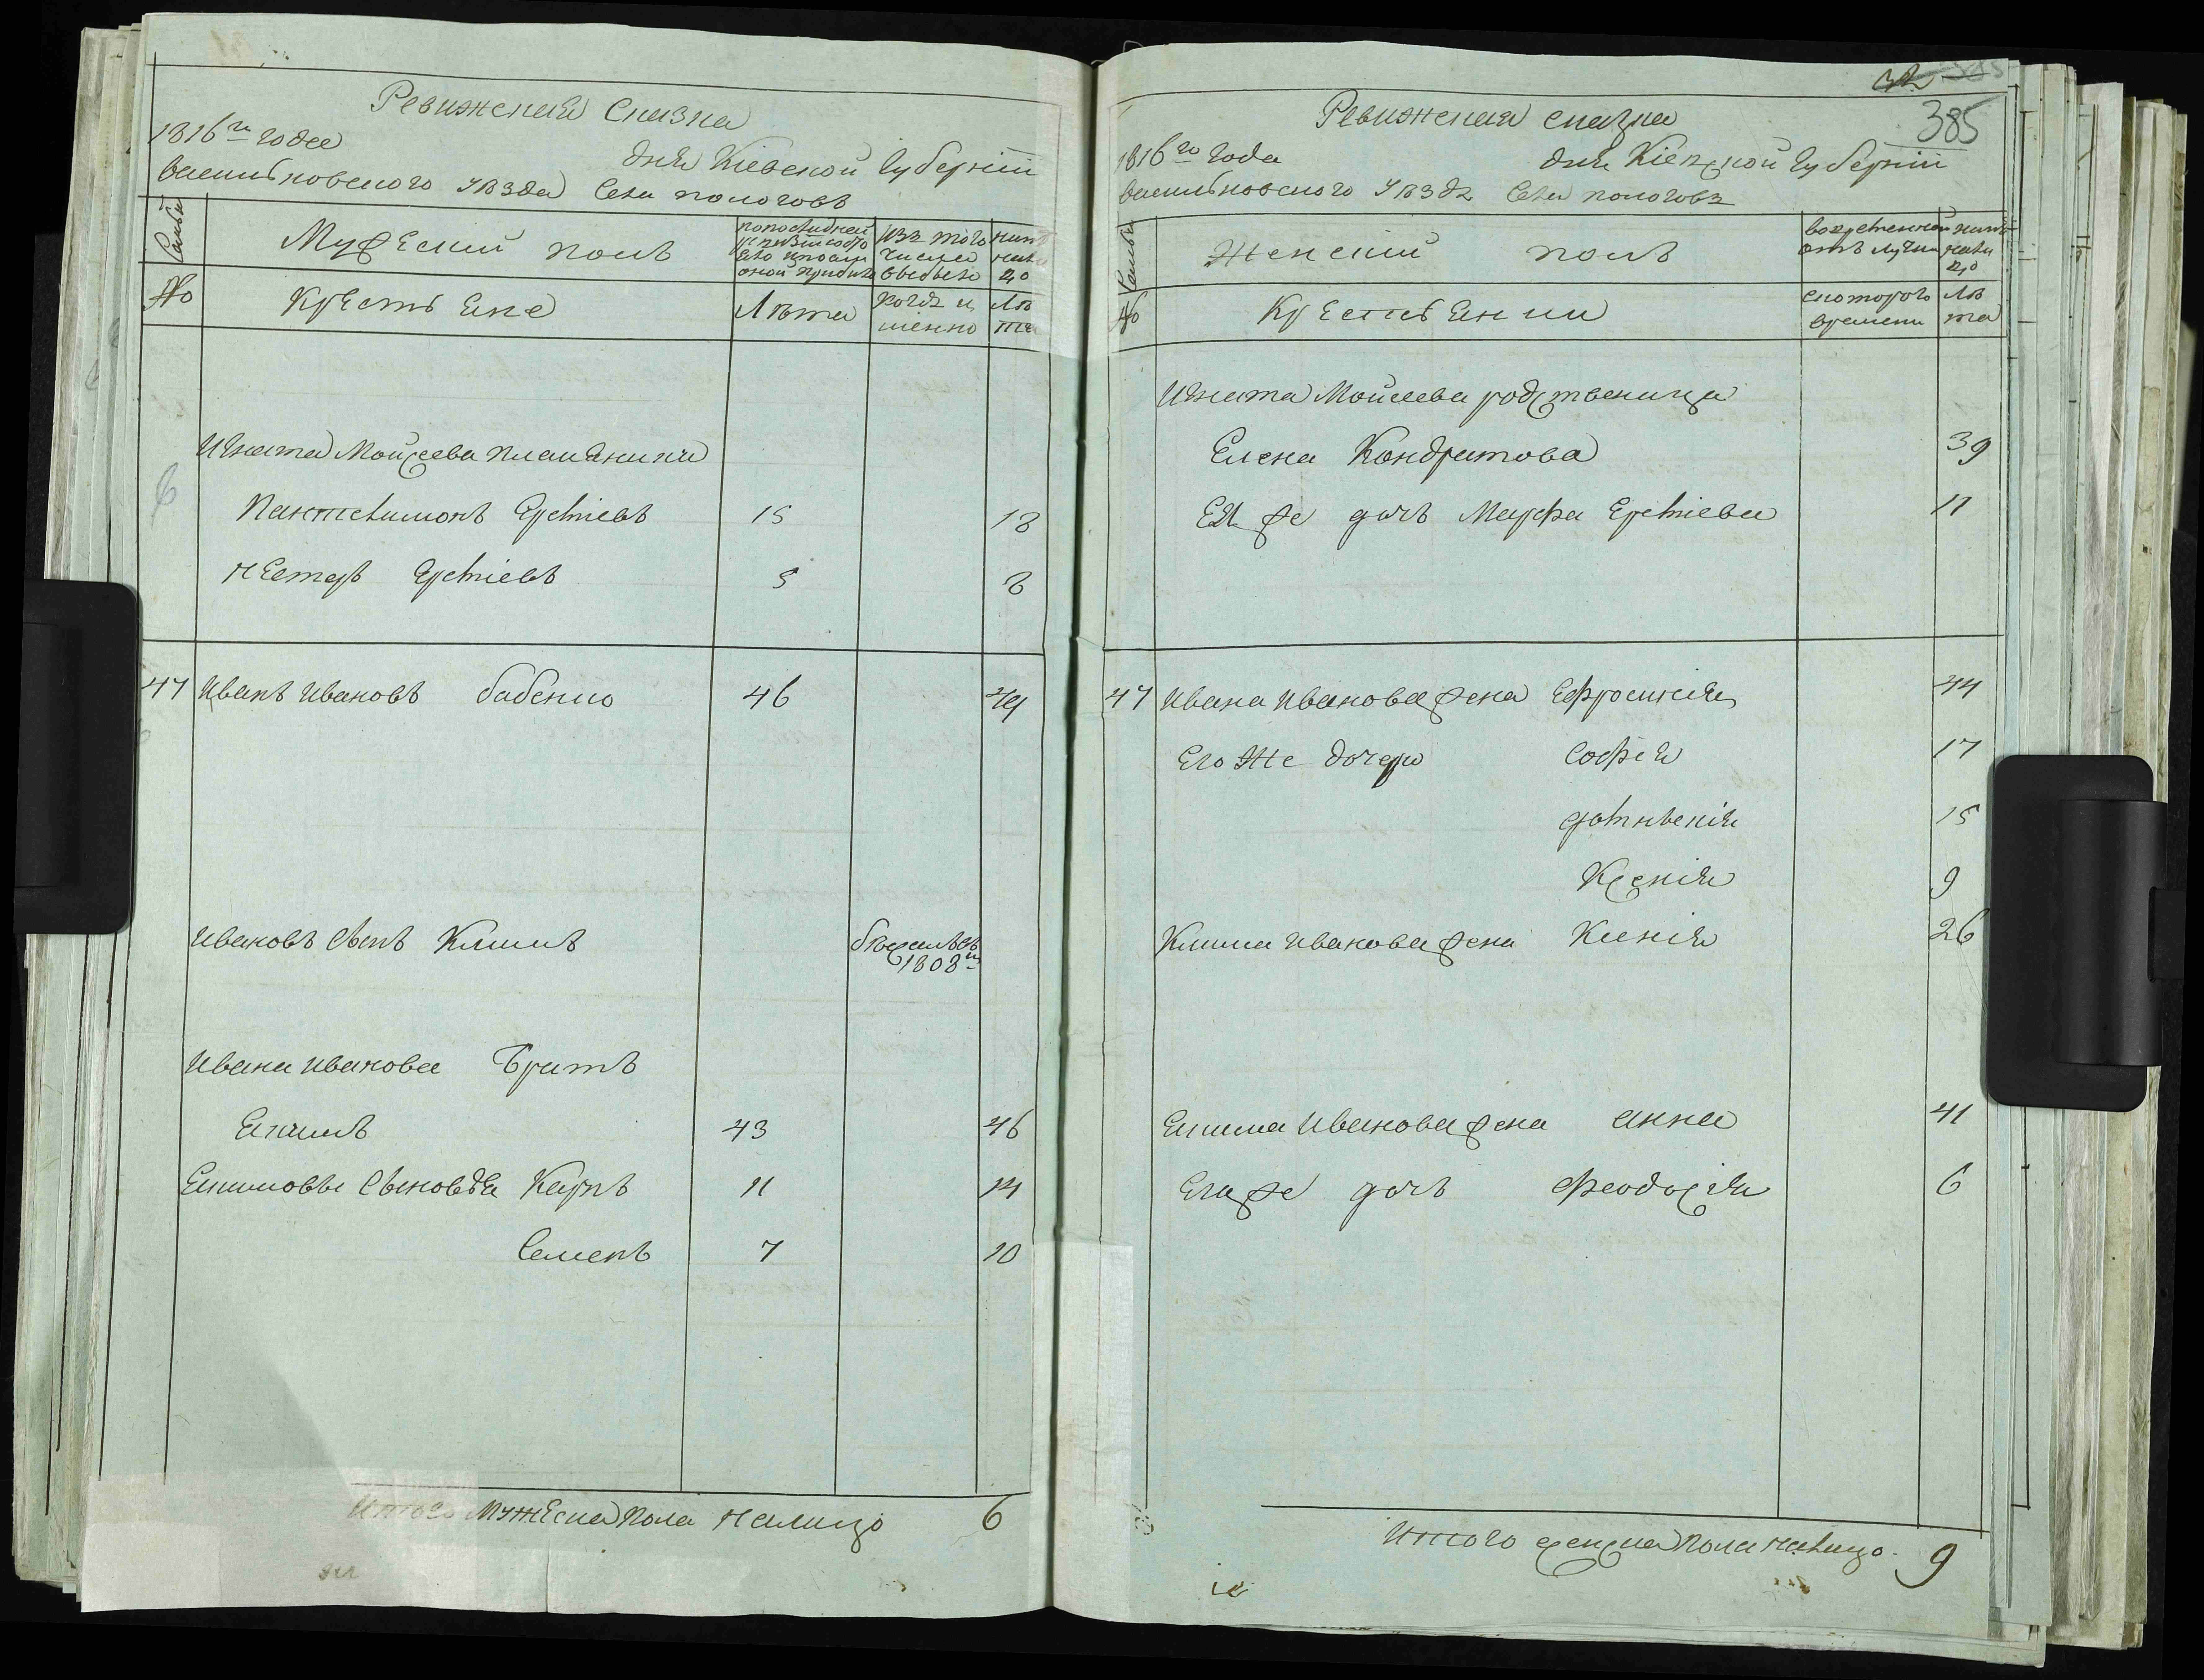 Ревижская Сказка
1816го года
дня Кіевской Губерніи
васильковского уѣзда Села пологовъ
Семьи
Мужеский полъ
попоследней
ревизіи состо
яло ипосле
оной прибыло
изъ того
числа
выбыло
нынѣ
нали
цо
№
Крестьяне
Лѣта
когда и
менно
Лѣ
та
Игната Мойсеева племянники
Пантелимонъ Еремѣевъ 15 18
Нестеръ Еремѣевъ 5 8
47 Иванъ Ивановъ бабенко 46 49
Ивановъ сынъ Климъ
1808
Ивана Иванова братъ
Екимъ 43 46
Екимовы сыновья Карпъ 11 14
Семенъ 7 10
Итого Мужеска пола налицо 6
32
385
Ревижская сказка
1816го года
дня Кіевской Губерніи
васильковского уѣзда Села пологовъ
Семьи
Женский полъ
вовременной
отлучки
нынѣ
нали
цо
№
Крестьянки
скоторого
времени
Лѣ
та
Игната Мойсеева родственица
Елена Кондратова 39
Ея же дочь Марфа Еремѣева 11
47 Ивана Иванова жена Ефросинія 44
Его же дочери Софія 17
15
Ксенія 9
Клима Иванова жена Ксенія 26
Екима Иванова жена анна 41
Его же дочь Феодосія 6
Итого женска пола налицо 9